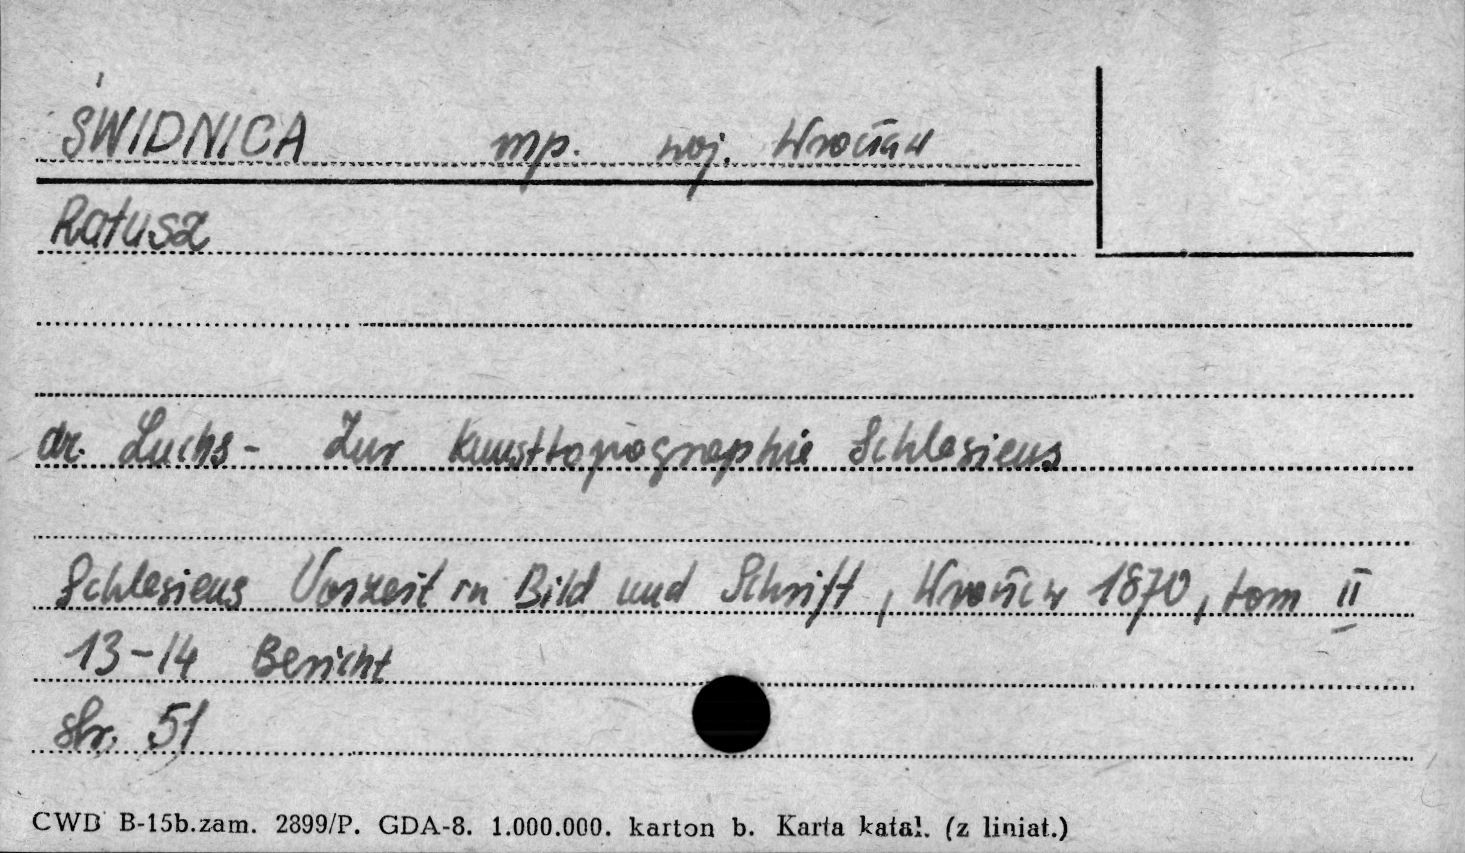 ŚWIDNICA mp. woj. Wrocław
Ratusz
dr. Luchs - Zur Kunsttopographie Schlesiens
Schlesiens Vorzeit in Bild und Schrift, Wrocław 1870, tom II
13-14 Bericht
str. 51
CWD B-15b.zam. 2899/P. GDA-8. 1.000.000. karton b. Karta katal. (z liniat.)